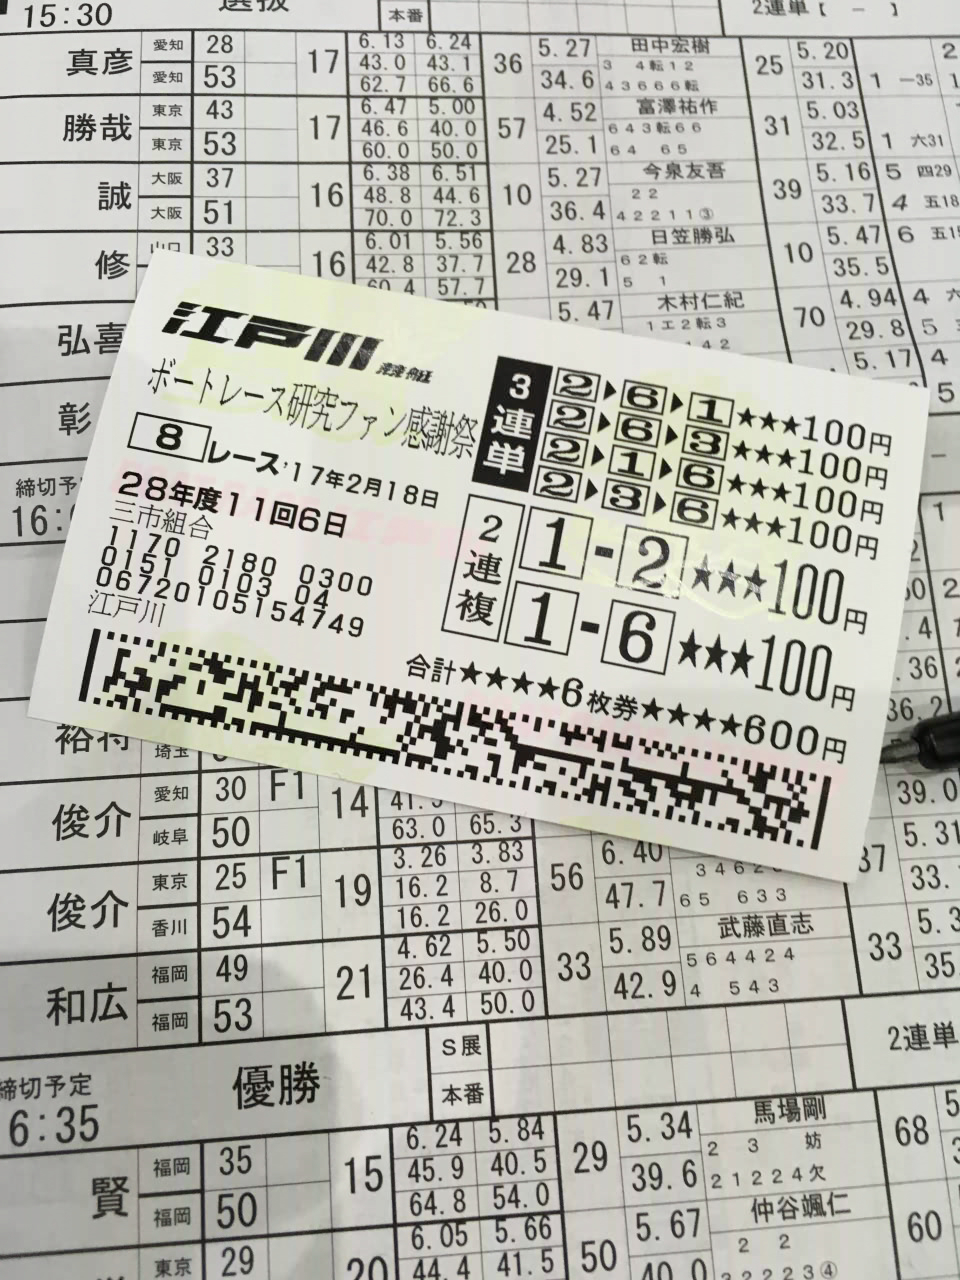 15:30
選抜
本番
2連単【 － 】
真彦 愛知 28 17 6.13 6.24 36 5.27 田中宏樹 25 5.20
愛知 53 43.0 43.1 34.6 3 4転12 31.3 1 一35
62.7 66.6 43666転
勝哉 東京 43 17 6.47 5.00 57 4.52 富澤祐作 31 5.03
東京 53 46.6 40.0 25.1 643転66 32.5 1 六31
60.0 50.0 64 65
誠 大阪 37 16 6.38 6.51 10 5.27 今泉友吾 39 5.16 5 四29
大阪 51 48.8 44.6 36.4 22 33.7 4 五18
70.0 72.3 42211③
修 山口 33 16 6.01 5.56 28 4.83 日笠勝弘 10 5.47 6
42.8 37.7 29.1 62転 35.5
60.4 57.7 5 1
弘喜 5.47 木村仁紀 70 4.94 4
1エ2転3 29.8 5
142
彰 5.17 4
締切予
江戸川 競艇
ボートレース研究ファン感謝祭
8レース '17年2月18日
28年度11回6日
三市組合
1170 2180 0300
0151 0103 04
06720105154749
江戸川
3連単
2▶6▶1★★★100円
2▶6▶3★★★100円
2▶1▶6★★★100円
2▶3▶6★★★100円
2連複
1-2★★★100円
1-6★★★100円
合計★★★★6枚券★★★★600円
.36
36.2
裕将 埼玉
俊介 愛知 30 F1 14 39.0
岐阜 50 63.0 65.3 5.31
俊介 東京 25 F1 19 3.26 3.83 56 6.40 37
香川 54 16.2 8.7 47.7 65 633
16.2 26.0
和広 福岡 49 21 4.62 5.50 33 5.89 武藤直志 33
福岡 53 26.4 40.0 42.9 564424
43.4 50.0 4 543
締切予定
6:35
優勝
S展
本番
2連単
賢 福岡 35 15 6.24 5.84 29 5.34 馬場剛 68
福岡 50 45.9 40.5 39.6 2 3 妨
64.8 54.0 21224欠
東京 29 20 6.05 5.66 50 5.67 仲谷颯仁 60
44.4 41.5 40.0 2 2
22223④